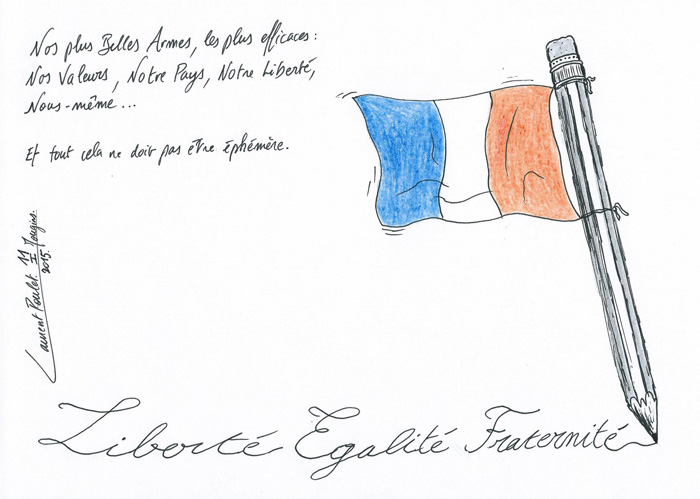 Nos plus Belles Armes, les plus efficaces :
Nos Valeurs, Notre Pays, Notre Liberté,
Nous-même...
Et tout cela ne doit pas être éphémère.
Laurent Poulet. 11 Morgins.
I
2015.
Liberté Égalité Fraternité